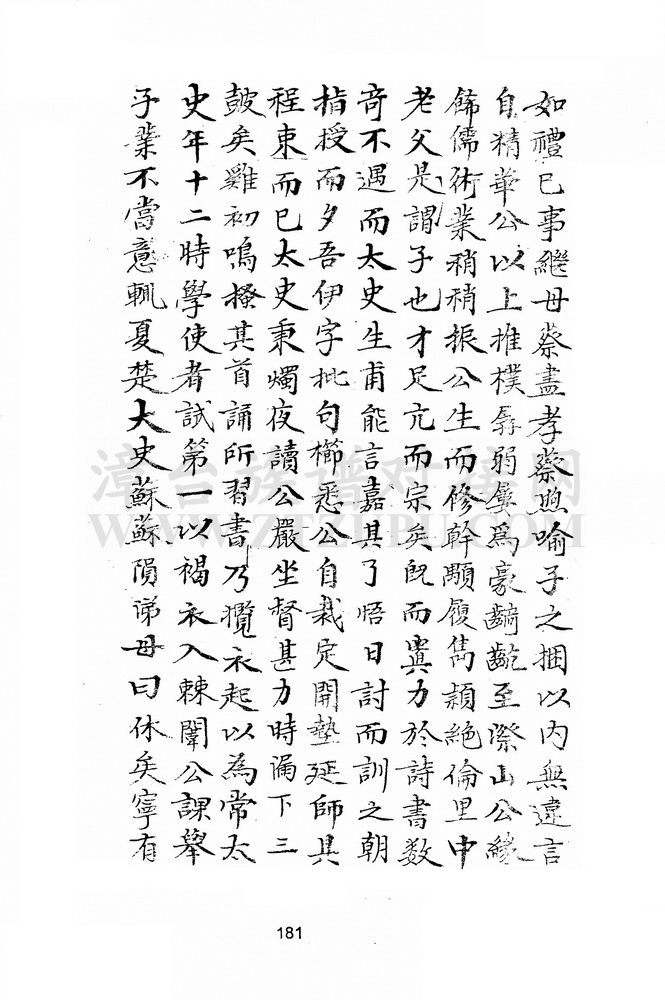 如禮已事繼母蔡盡孝蔡煦喻子之捆以内無違言
自精華公以上推樸孱弱屢爲豪齮齕至漈山公緣
餙儒術業稍稍振公生而修幹顒履雋頴絶倫里中
老父是謂子也才足亢而宗矣旣而冀力於詩書数
竒不遇而太史生甫能言嘉其了悟日討而訓之朝
指授而夕吾伊字批句櫛悉公自裁定開塾延師具
程束而已太史秉燭夜讀公嚴坐督甚力時漏下三
皷矣雞初鳴搔其首誦所習書乃攬衣起以為常太
史年十二時學使者試第一以褐衣入棘闈公課舉
子業不當意輒夏楚大史蘇蘇隕涕母曰休矣寧有
漳台族譜对接网
WWW.ZTZUPU.COM
181